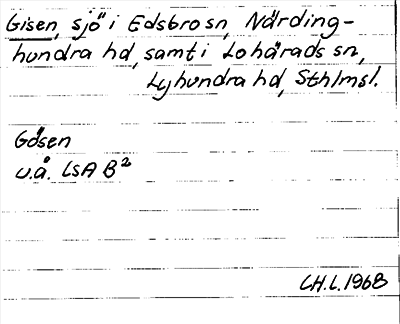 Gisen, sjö i Edsbro sn, Närding-
hundra hd, samt i Lohärads sn,
Lyhundra hd, Sthlmsl.
Gösen
u.å. LSA B²
CH.L. 1968